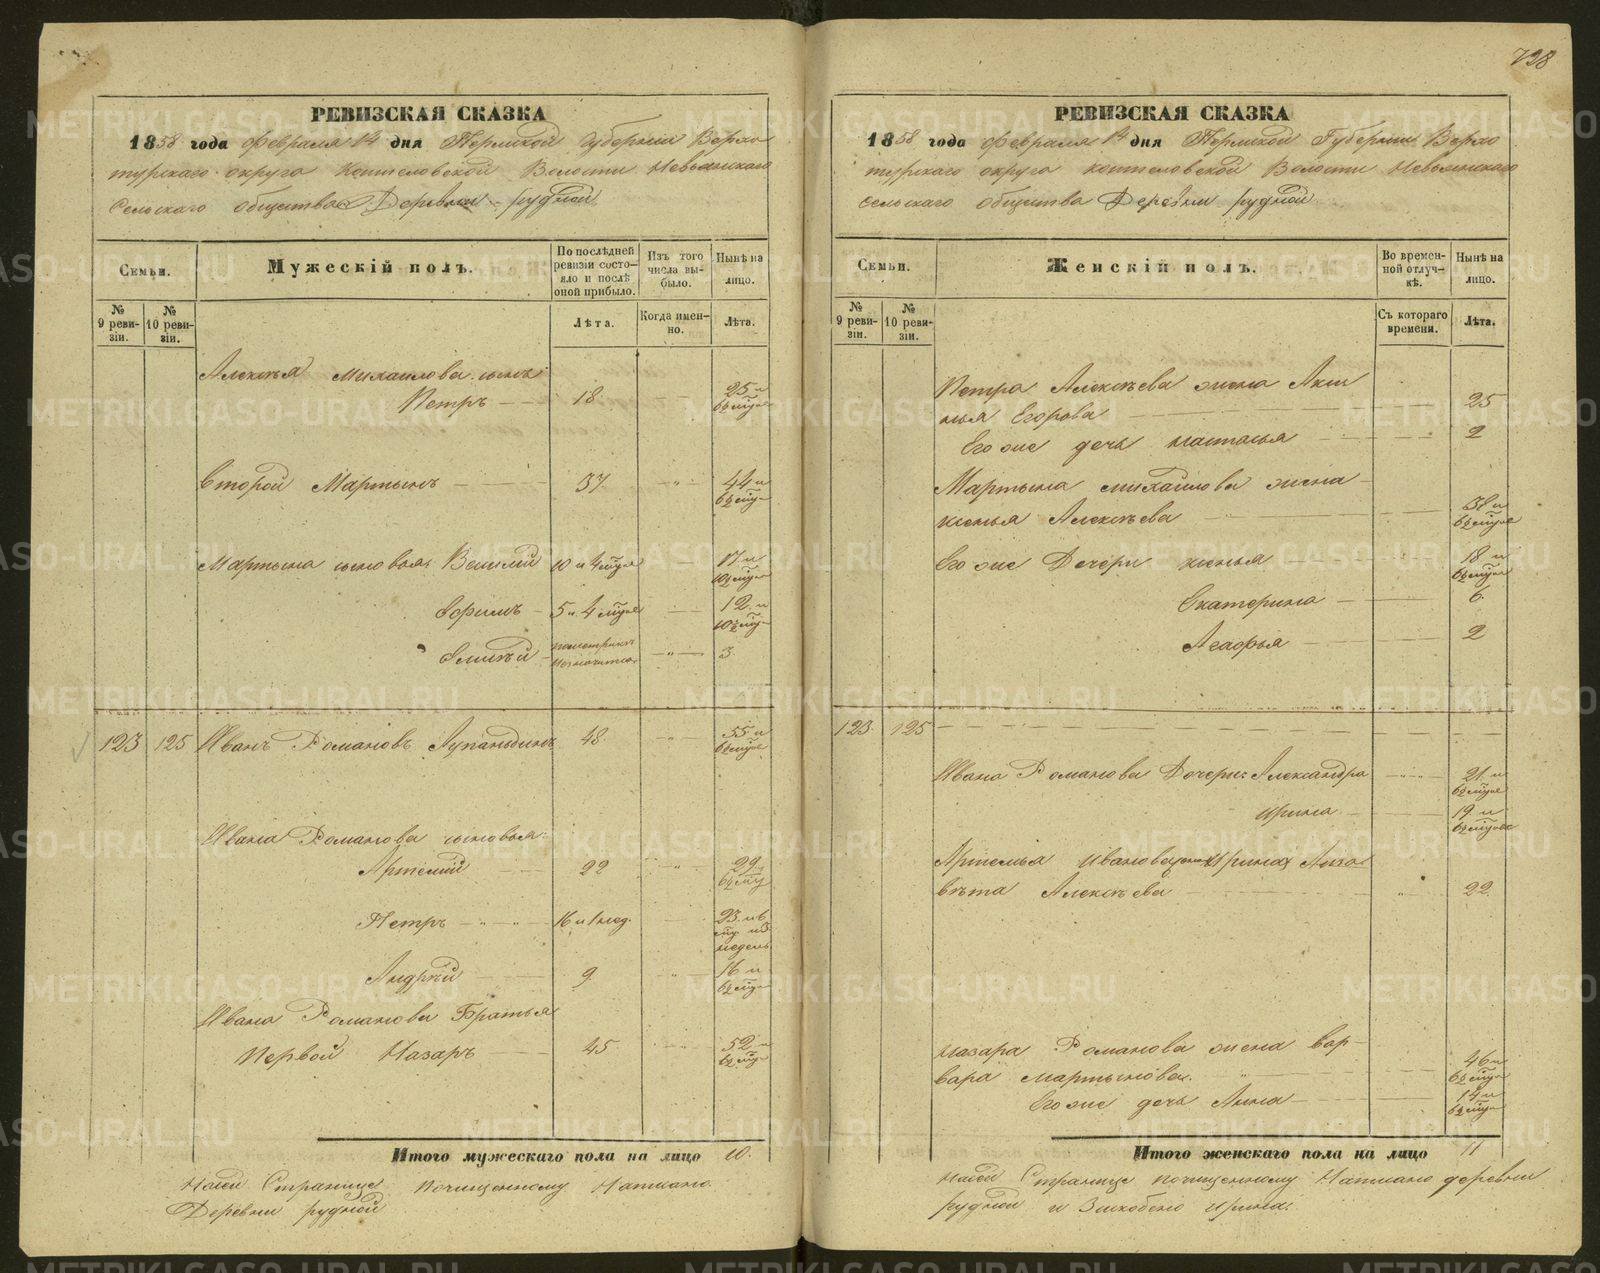 728
РЕВИЗСКАЯ СКАЗКА
1858 года февраля 14 дня Пермской Губернии Верхо
турскаго округа Коптеловской Волости Невьянскаго
Сельскаго общества Деревни рудной
Семьи.
Мужескій полъ.
По послѣдней ревизіи состояло и послѣ оной прибыло.
Изъ того числа выбыло.
Нынѣ на лицо.
№ 9 ревизіи.
№ 10 ревизіи.
Лѣта.
Когда именно.
Лѣта.
Алексѣя Михаилова сынъ
Петръ 18 25 и 6½ мцѣ
Второй Мартынъ 37 44 и 6½ мцѣ
Мартына сыновья: Василій 10 и 4 мцѣ 17 и 10½ мцѣ
Ефимъ 5 и 4 мцѣ 12 и 10½ мцѣ
3
123 125 Иванъ Романовъ Лупандинъ 48 55 и 6½ мцѣ
Ивана Романова сыновья:
Артемій 22 29 6½ мцѣ
Петръ 16 и 1 нед. 23 и 6 мцѣ и 3 недель
Андрѣй 9 16 и 6½ мцѣ
Ивана Романова Братья
Первой Назаръ 45 52 и 6½ мцѣ
Итого мужескаго пола на лицо 10.
Насей Странице почищенному Написано
Деревни рудной
РЕВИЗСКАЯ СКАЗКА
1858 года февраля 14 дня Пермской Губернии Верхо
турскаго округа коптеловской Волости Невьянскаго
сельскаго общества Деревни рудной
Семьи.
Женскій полъ.
Во временной отлучкѣ.
Нынѣ на лицо.
№ 9 ревизіи.
№ 10 ревизіи.
Съ котораго времени.
Лѣта.
Петра Алексѣева жена Акси
нья Егорова 25
Его же дочь настасья 2
Мартына михаилова жена
ксенья Алексѣева 38 и 6½ мцѣ
Его же Дочери ксенья 18 и 6½ мцѣ
Екатерина 6
Агафья 2
123 125
Ивана Романова Дочери: Александра 21 и 6½ мцѣ
ирина 19 и 6½ мцѣ
Артемья Иванова жена Лиза
вѣта Алексѣева 22
назара Романова жена вар-
вара мартынова. 46 и 6½ мцѣ
Его же дочь Анна 14 и 6½ мцѣ
Итого женскаго пола на лицо 11
насей Странице почищенному Написано деревни
рудной и Заскоблено ирина.
METRIKI.GASO-URAL.RU